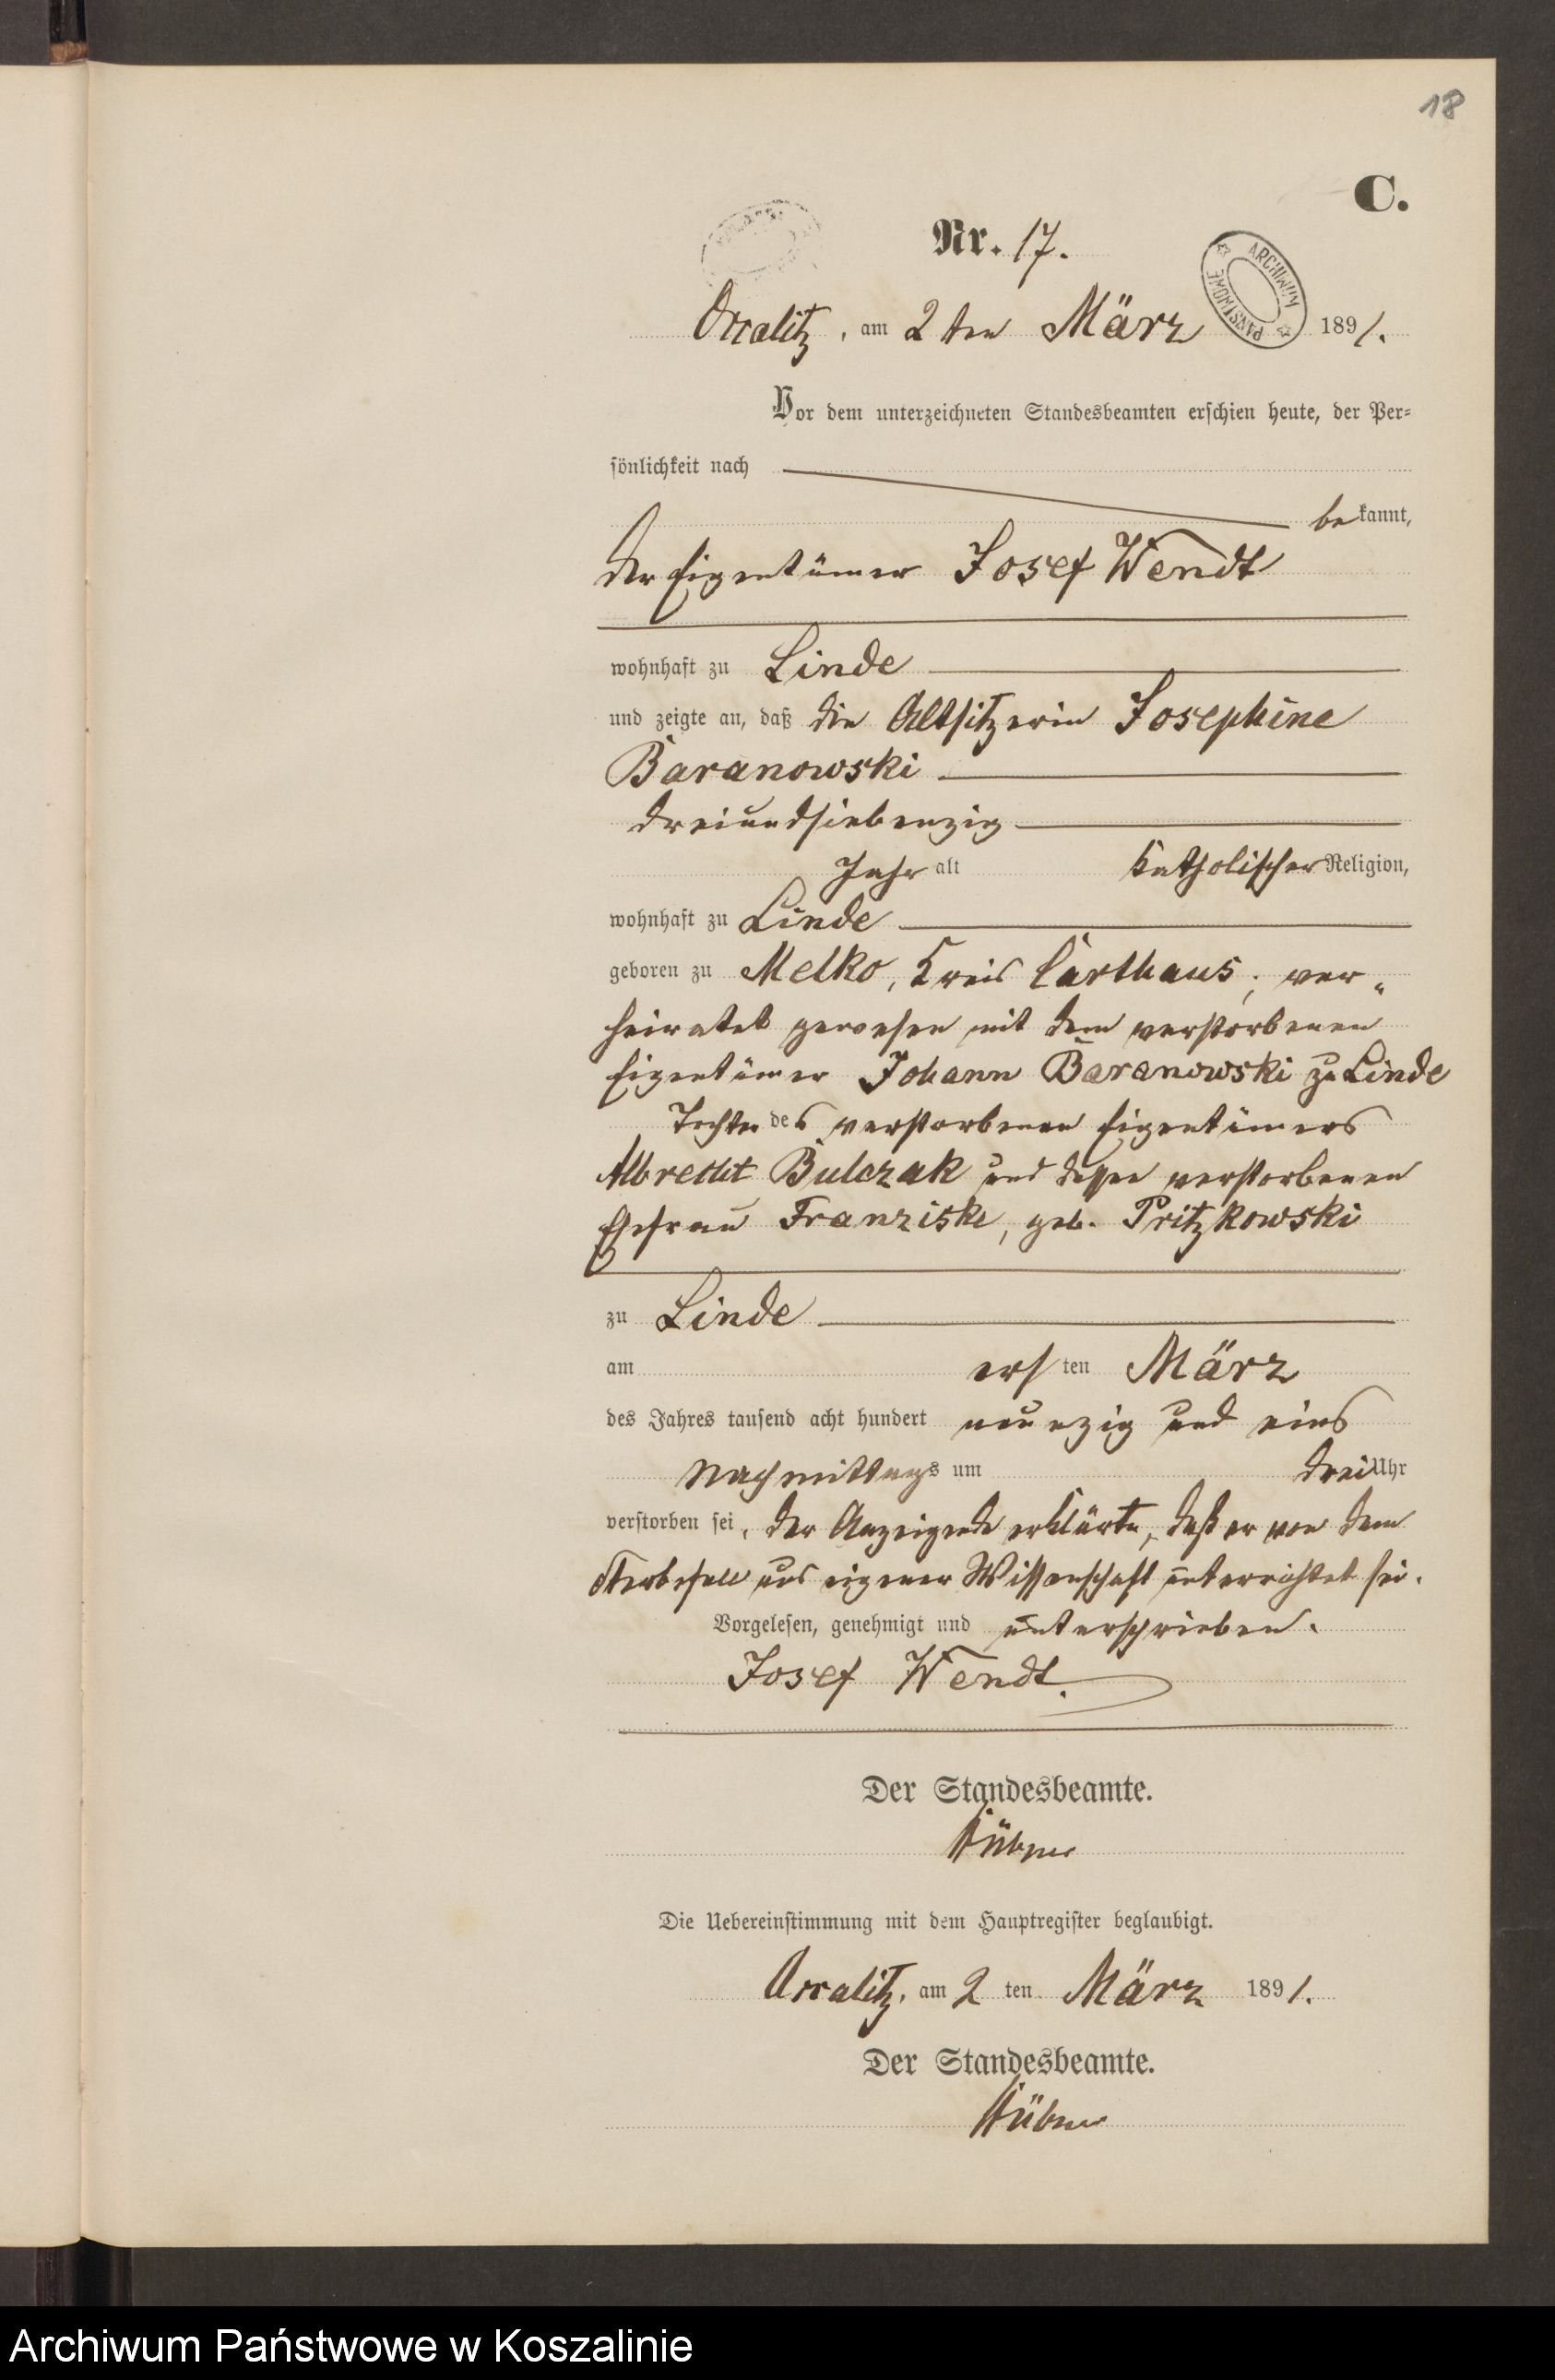 18
C.
Nr. 17.
ARCHIWUM PAŃSTWOWE
am 2ten März 1891.
Vor dem unterzeichneten Standesbeamten erschien heute, der Per-
sönlichkeit nach
bekannt,
der Eigentümer Josef Wendt
wohnhaft zu Linde
und zeigte an, daß die Altsitzerin Josephine
Baranowski
dreiundsiebenzig
Jahr alt katholischer Religion,
wohnhaft zu Linde
geboren zu Melko, Kreis Carthaus, ver-
heiratet gewesen mit dem verstorbenen
Eigentümer Johann Baranowski zu Linde
Tochter des verstorbenen Eigentümers
Albrecht Bulczak und dessen verstorbenen
Ehefrau Franziske, geb. Pritzkowski
zu Linde
am ersten März
des Jahres tausend acht hundert neunzig und eins
Nachmittags um drei Uhr
verstorben sei, der Anzeigende erklärte, daß er von dem
Sterbefall aus eigener Wissenschaft unterrichtet sei.
Vorgelesen, genehmigt und unterschrieben.
Josef Wendt.
Der Standesbeamte.
Hübner
Die Uebereinstimmung mit dem Hauptregister beglaubigt.
am 2 ten März 1891.
Der Standesbeamte.
Hübner
Archiwum Państwowe w Koszalinie